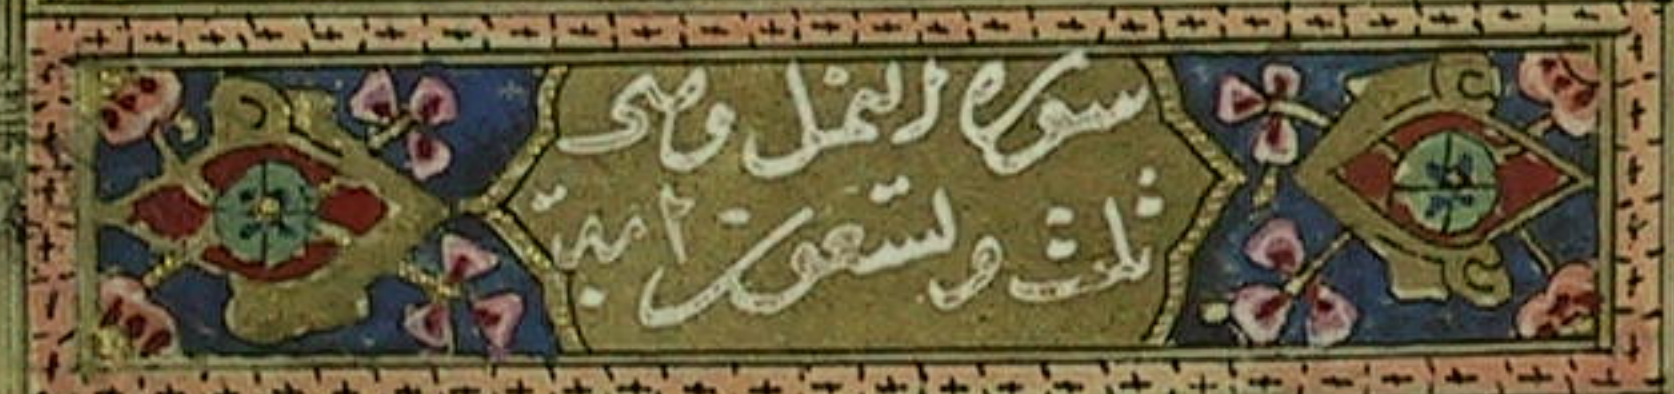 سورة النمل وهى
ثلث وتسعون اية